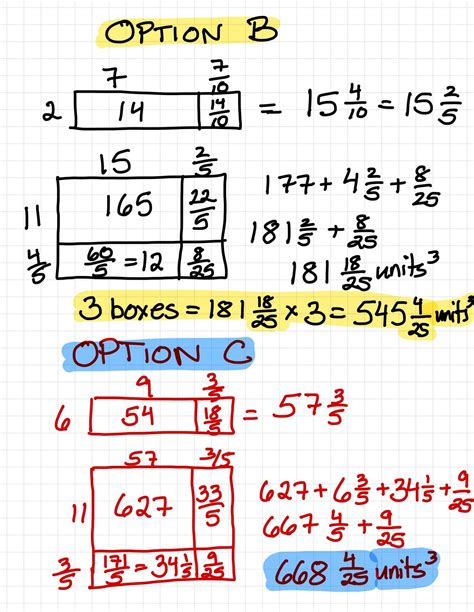 OPTION B
7 7/10
2 14 14/10 = 15 4/10 = 15 2/5
15 2/5
11 165 22/5 177 + 4 2/5 + 8/25
181 2/5 + 8/25
4/5 60/5 = 12 8/25 181 18/25 units³
3 boxes = 181 18/25 x 3 = 545 4/25 units³
OPTION C
9 3/5
6 54 18/5 = 57 3/5
57 3/5
11 627 33/5 627 + 6 3/5 + 34 1/5 + 9/25
667 4/5 + 9/25
3/5 171/5 = 34 1/5 9/25 668 4/25 units³